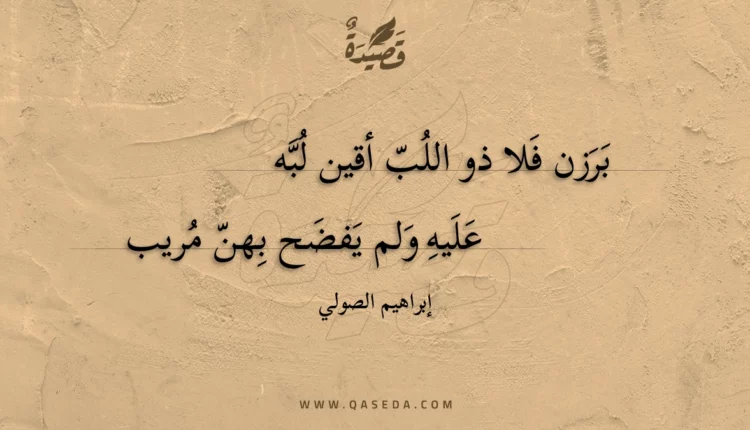 قَصِيْدَةٌ
بَرَزن فَلا ذو اللُبّ أقين لُبَّه
عَلَيهِ وَلم يَفضَح بِهنّ مُريب
إبراهيم الصولي
WWW.QASEDA.COM